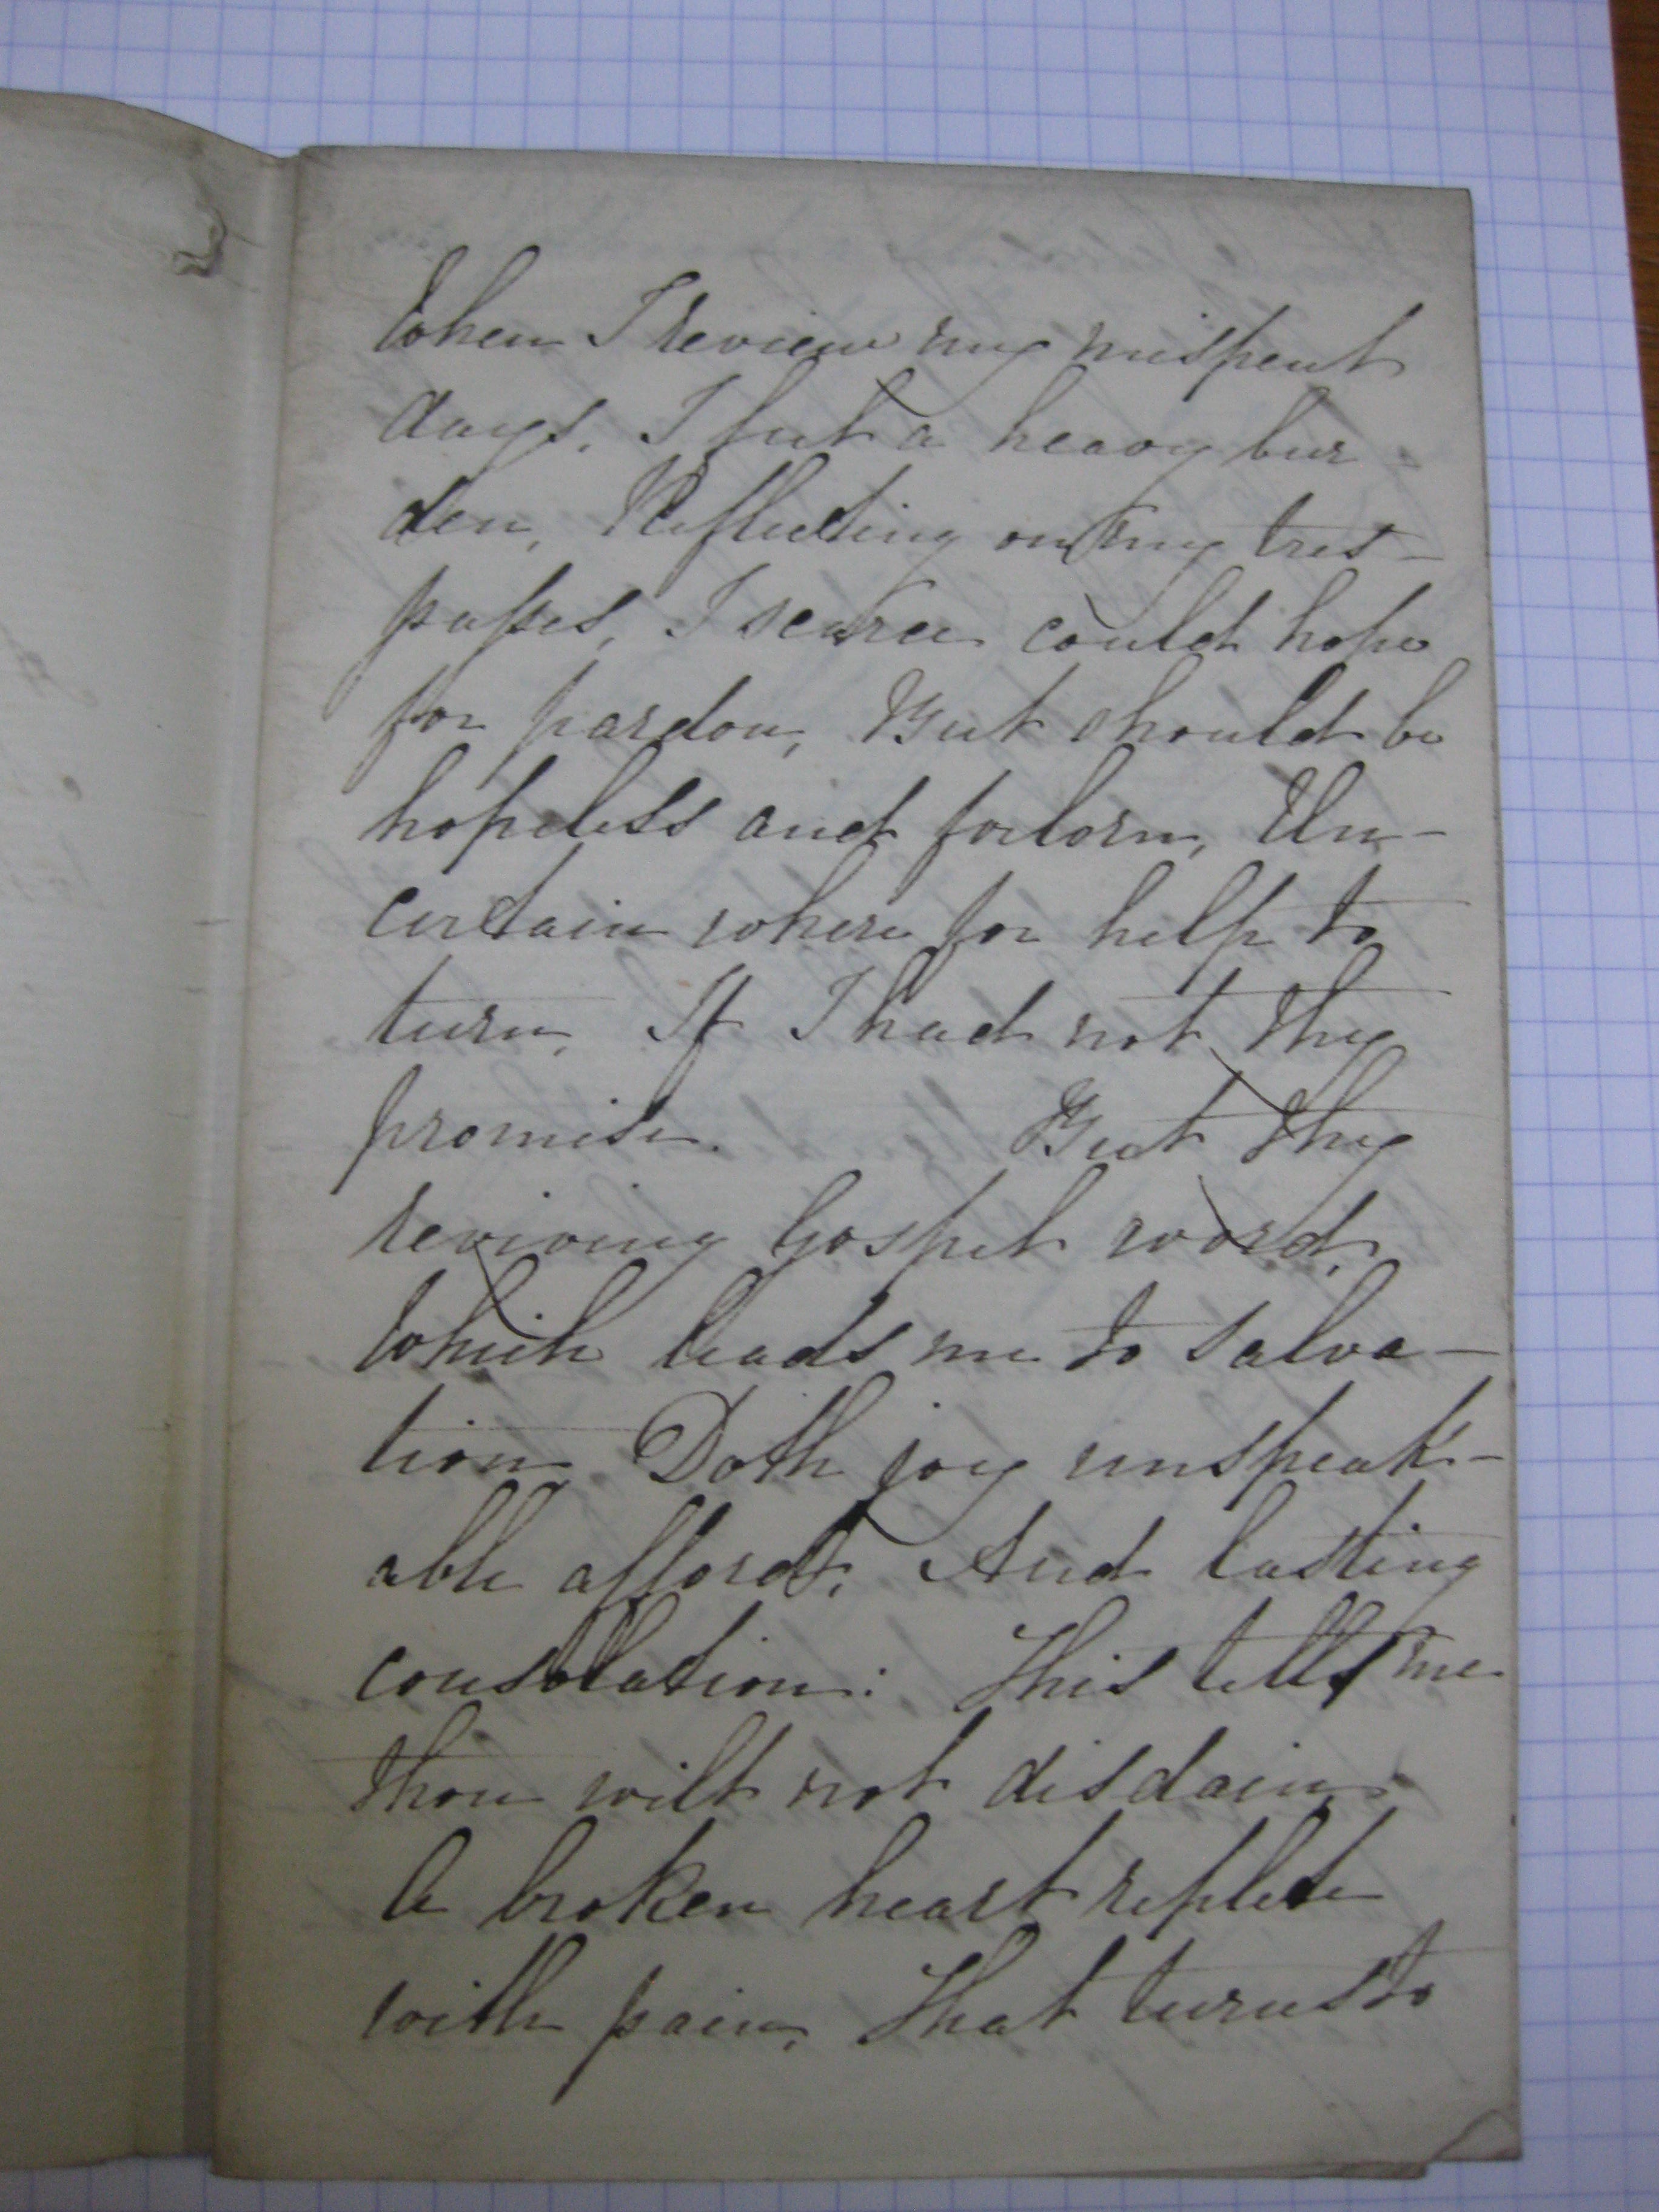 When I review my mispent
days, I feel a heavy bur
den, Reflecting on my tres-
passes, I scarce could hope
for pardon, But should be
hopeless and forlorn, Un-
certain where for help to
turn, If I had not thy
promise. But thy
reviving Gospel word,
Which leads me to salva-
tion, Doth joy unspeak-
able afford, And lasting
consolation: This tells me
thou wilt not disdain
A broken heart replete
with pain, That turns to